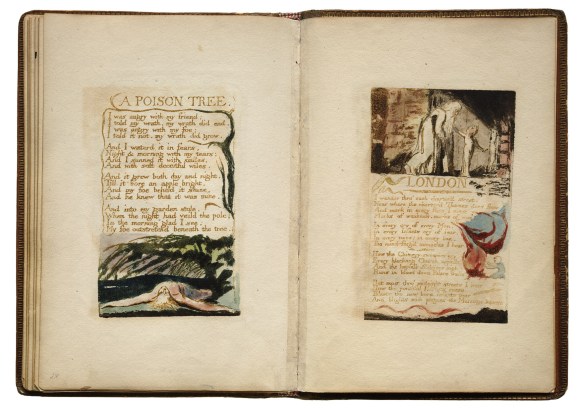 A POISON TREE.
I was angry with my friend;
I told my wrath, my wrath did end.
I was angry with my foe:
I told it not, my wrath did grow.
And I waterd it in fears,
Night & morning with my tears:
And I sunned it with smiles,
And with soft deceitful wiles.
And it grew both day and night,
Till it bore an apple bright.
And my foe beheld it shine,
And he knew that it was mine.
And into my garden stole,
When the night had veild the pole;
In the morning glad I see,
My foe outstretchd beneath the tree.
LONDON
I wander thro' each charter'd street,
Near where the charter'd Thames does flow
And mark in every face I meet
Marks of weakness, marks of woe.
In every cry of every Man,
In every Infants cry of fear,
In every voice; in every ban,
The mind-forg'd manacles I hear
How the Chimney-sweepers cry
Every blackning Church appalls,
And the hapless Soldiers sigh
Runs in blood down Palace walls
But most thro' midnight streets I hear
How the youthful Harlots curse
Blasts the new-born Infants tear
And blights with plagues the Marriage hearse